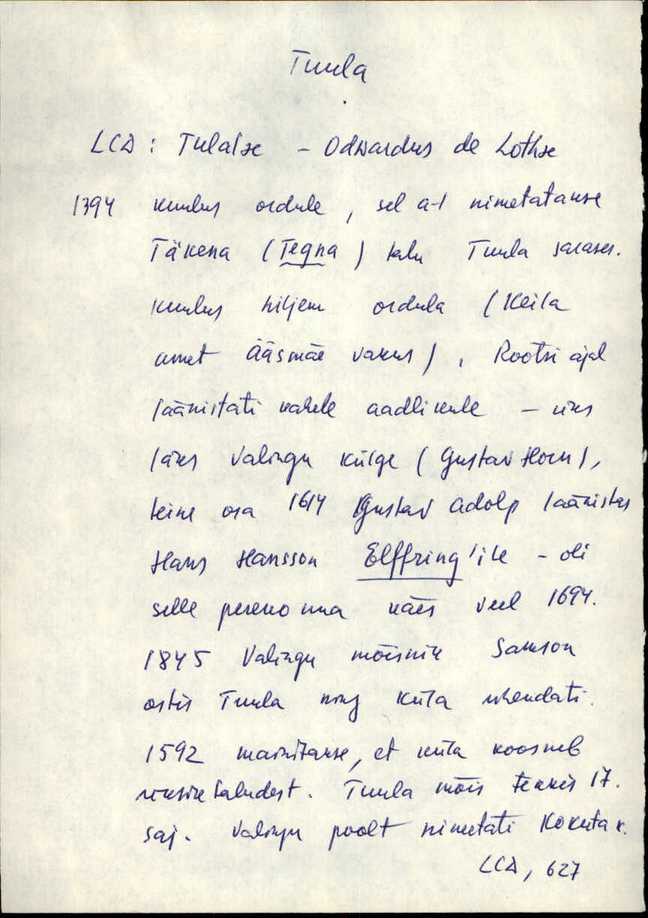 Tuula
LCD: Tulalse – Odwardus de Lothse
1394 kuulus ordule, sel a-l nimetatakse
Täkena (Tegna) talu Tuula
kuulus hiljem ordule (Keila
amet Ääsmäe vakus), Rootsi ajal
läänistati kahele aadlikule – üks
läks Valingu külge (Gustav Horn),
teine osa 1614 Gustav Adolp läänistas
Hans Hansson Elffring'ile – oli
selle perekonna käes veel 1694.
1845 Valingu mõisnik Samson
ostis Tuula ning küla ühendati.
1592 mainitakse, et küla koosneb
üksiktaludest. Tuula mõis tekkis 17.
saj. Valingu poolt nimetati k.
LCD, 627